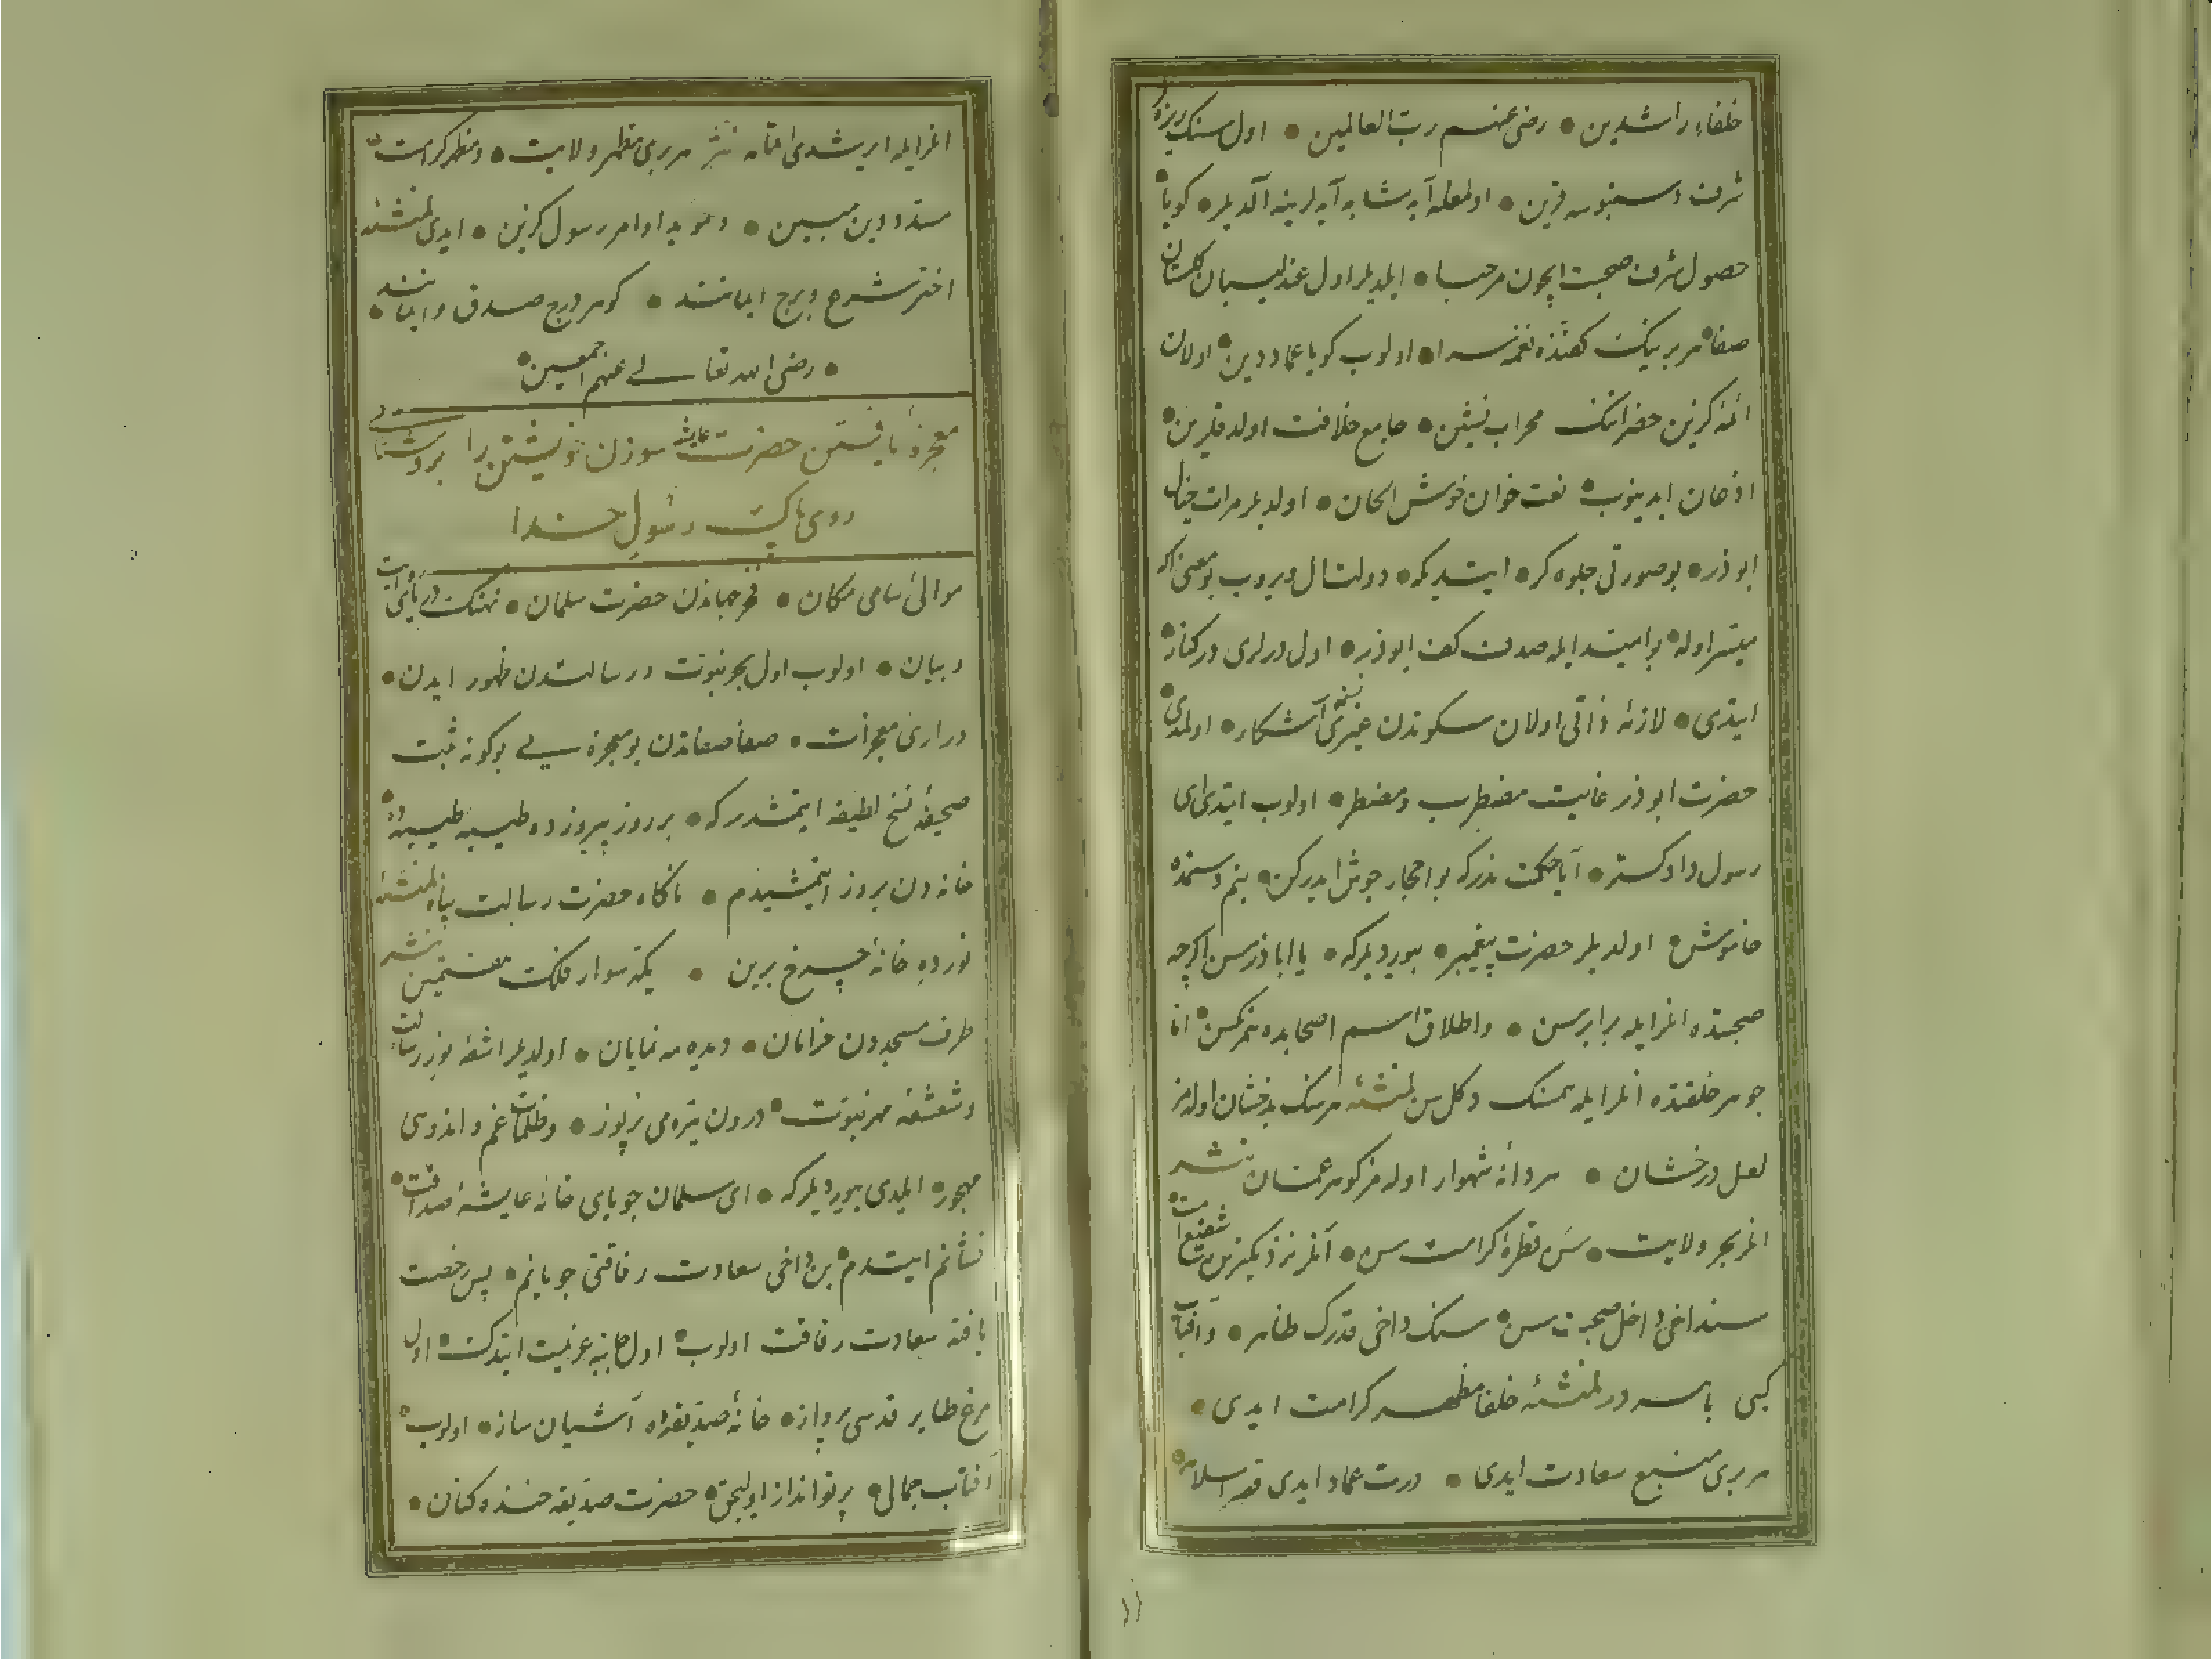 خلفاء راشدین • رضی عنهم رب العالمین • اول سنک ریزۀ
شرف دستبوسه قرین • اولمغله آیه مشابه آیه لرینه آلدیلر • کویا
حصول شرف صحبت ایچون مرحبا • ایلدیلر اول عندلیبان کلستان
صفا • هر برینک کفنده نغمه سرا • اولوب کویا عماد دین • اولان
ائمۀ کزین حضراتنک محراب نشین • جامع خلافت اولدقلرین •
اذعان ایدینوب • نعت خوان خوش الحان • اولدیلر مرات خیال
ابوذر • بو صورتی جلوه کر • ایتدیکه • دولت ال ویروب بو معنی که
میسر اوله • بو امید ایله صدف کف ابوذر • اول درلری در کنار •
ایتدی • لازمۀ ذاتی اولان سکوتدن غیری نسنه آشکار • اولمدی •
حضرت ابوذر غایت مضطرب و مضطر • اولوب ایتدی ای
رسول دادکستر • آیا حکمت ندرکه بو احجار جوش ایدرکن • بنم دستمده
خاموش • اولدیلر حضرت پیغمبر • بیوردیلرکه • یا اباذر سن اکرچه
صحبتده انلر ایله برابرسن • و اطلاق اسم اصحابده همرنکسن • اما
جوهر خلقتده انلر ایله همسنک دکل سن لمنشئه هر سنک بدخشان اولمز
لعل درخشان • هر دانۀ شهوار اولمز کوهر عمان نثر
انلر بحر ولایت • سن قطرۀ کرامت سن • آنلر
سنداخی داخل صحبت سن • سنک داخی قدرک ظاهر • و آفتاب
کبی باهر در لمنشئه خلفا مظهر کرامت ایدی •
هر بری منبع سعادت ایدی • درت عماد ایدی قصر اسلامه •
انلر ایله ایریشدی اتمامه نثر هر بری مظهر ولایت • و مظهر کرامت •
سند دین مبین • و مؤید اوامر رسول کزین • ایدی لمنشئه
اختر شرع و برج ایمانند • کوهر درج صدق و ایمانند •
• رضی الله تعالی عنهم اجمعین •
معجزۀ یافتن حضرت عایشه سوزن خویشتن را بروشنایی
روی پاک رسول خدا
موالئ سامی مکان • فخر جهاندن حضرت سلمان • نهنک دریای روایت
و بیان • اولوب اول بحر نبوت و رسالتدن ظهور ایدن •
دراری معجزات • صفا صفاتدن بو معجزه سی بو کونه ثبت
صحیفۀ نسخ لطیفه ایتمشدر که • بر روز پیروزده طیبه طیبه ده •
خانه دن بروز ایتمشیدم • ناکاه حضرت رسالت پناه لمنشئه
نور ده خانۀ چرخ برین • یکه سوار فلک هفتمین نثر
طرف مسجددن خرامان • دیده مه نمایان • اولدیلر اشعۀ نور رسالت
و شعشعۀ مهر نبوت • درون تیره می پرنور • و ظلمات غم و اندوهی
مهجور • ایلدی بیوردیلرکه • ای سلمان جویای خانۀ عایشۀ صداقت •
نشانم ایتدم • بن داخی سعادت رفاقتی جویانم • پس رخصت
یافتۀ سعادت رفاقت اولوب • اول جانبه عزیمت ایتدک • اول
مرغ طایر قدسی پرواز • خانۀ صدیقه ده آشیان ساز • اولوب •
آفتاب جمالی • پرتوانداز اولیجق • حضرت صدیقه خنده کنان •
۱۱